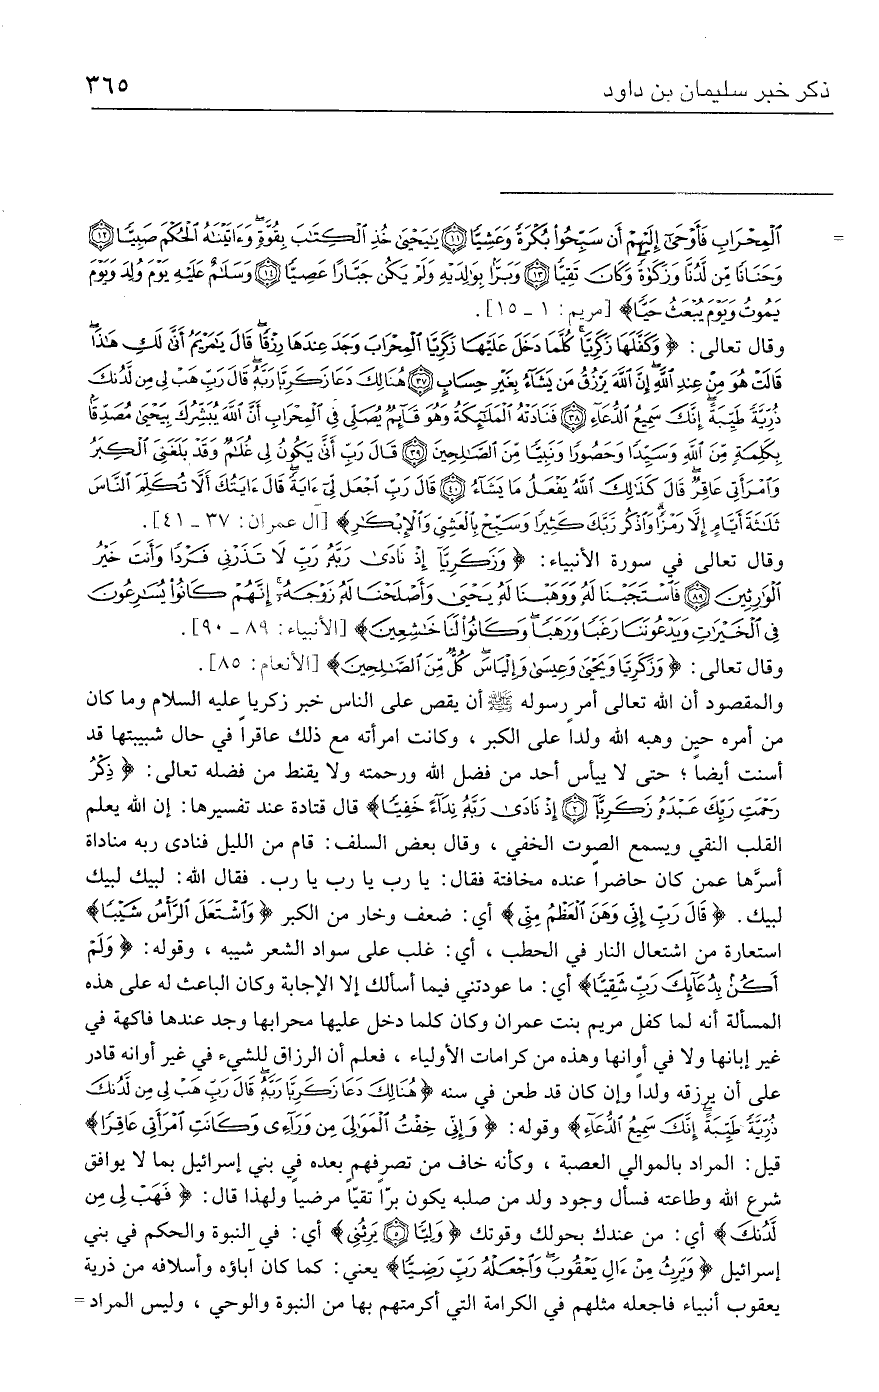 ذكر خبر سليمان بن داود ٣٦٥
= ٱلْمِحْرَابِ فَأَوْحَىٰٓ إِلَيْهِمْ أَن سَبِّحُوا۟ بُكْرَةً وَعَشِيًّا ﴿١١﴾ يَٰيَحْيَىٰ خُذِ ٱلْكِتَٰبَ بِقُوَّةٍ ۖ وَءَاتَيْنَٰهُ ٱلْحُكْمَ صَبِيًّا ﴿١٢﴾
وَحَنَانًا مِّن لَّدُنَّا وَزَكَوٰةً ۖ وَكَانَ تَقِيًّا ﴿١٣﴾ وَبَرًّۢا بِوَٰلِدَيْهِ وَلَمْ يَكُن جَبَّارًا عَصِيًّا ﴿١٤﴾ وَسَلَٰمٌ عَلَيْهِ يَوْمَ وُلِدَ وَيَوْمَ
يَمُوتُ وَيَوْمَ يُبْعَثُ حَيًّا﴾ [مريم: ١ ـ ١٥] .
وقال تعالى: ﴿ وَكَفَّلَهَا زَكَرِيَّا ۖ كُلَّمَا دَخَلَ عَلَيْهَا زَكَرِيَّا ٱلْمِحْرَابَ وَجَدَ عِندَهَا رِزْقًا ۖ قَالَ يَٰمَرْيَمُ أَنَّىٰ لَكِ هَٰذَا ۖ
قَالَتْ هُوَ مِنْ عِندِ ٱللَّهِ ۖ إِنَّ ٱللَّهَ يَرْزُقُ مَن يَشَآءُ بِغَيْرِ حِسَابٍ ﴿٣٧﴾ هُنَالِكَ دَعَا زَكَرِيَّا رَبَّهُۥ ۖ قَالَ رَبِّ هَبْ لِى مِن لَّدُنكَ
ذُرِّيَّةً طَيِّبَةً ۖ إِنَّكَ سَمِيعُ ٱلدُّعَآءِ ﴿٣٨﴾ فَنَادَتْهُ ٱلْمَلَٰٓئِكَةُ وَهُوَ قَآئِمٌ يُصَلِّى فِى ٱلْمِحْرَابِ أَنَّ ٱللَّهَ يُبَشِّرُكَ بِيَحْيَىٰ مُصَدِّقًۢا
بِكَلِمَةٍ مِّنَ ٱللَّهِ وَسَيِّدًا وَحَصُورًا وَنَبِيًّا مِّنَ ٱلصَّٰلِحِينَ ﴿٣٩﴾ قَالَ رَبِّ أَنَّىٰ يَكُونُ لِى غُلَٰمٌ وَقَدْ بَلَغَنِىَ ٱلْكِبَرُ
وَٱمْرَأَتِى عَاقِرٌ ۖ قَالَ كَذَٰلِكَ ٱللَّهُ يَفْعَلُ مَا يَشَآءُ ﴿٤٠﴾ قَالَ رَبِّ ٱجْعَل لِّىٓ ءَايَةً ۖ قَالَ ءَايَتُكَ أَلَّا تُكَلِّمَ ٱلنَّاسَ
ثَلَٰثَةَ أَيَّامٍ إِلَّا رَمْزًا ۗ وَٱذْكُر رَّبَّكَ كَثِيرًا وَسَبِّحْ بِٱلْعَشِىِّ وَٱلْإِبْكَٰرِ﴾ [آل عمران: ٣٧ ـ ٤١] .
وقال تعالى في سورة الأنبياء: ﴿ وَزَكَرِيَّآ إِذْ نَادَىٰ رَبَّهُۥ رَبِّ لَا تَذَرْنِى فَرْدًا وَأَنتَ خَيْرُ
ٱلْوَٰرِثِينَ ﴿٨٩﴾ فَٱسْتَجَبْنَا لَهُۥ وَوَهَبْنَا لَهُۥ يَحْيَىٰ وَأَصْلَحْنَا لَهُۥ زَوْجَهُۥٓ ۚ إِنَّهُمْ كَانُوا۟ يُسَٰرِعُونَ
فِى ٱلْخَيْرَٰتِ وَيَدْعُونَنَا رَغَبًا وَرَهَبًا ۖ وَكَانُوا۟ لَنَا خَٰشِعِينَ﴾ [الأنبياء: ٨٩ ـ ٩٠] .
وقال تعالى: ﴿ وَزَكَرِيَّا وَيَحْيَىٰ وَعِيسَىٰ وَإِلْيَاسَ ۖ كُلٌّ مِّنَ ٱلصَّٰلِحِينَ﴾ [الأنعام: ٨٥] .
والمقصود أن الله تعالى أمر رسوله ﷺ أن يقص على الناس خبر زكريا عليه السلام وما كان
من أمره حين وهبه الله ولداً على الكبر ، وكانت امرأته مع ذلك عاقراً في حال شبيبتها قد
أسنت أيضاً ؛ حتى لا ييأس أحد من فضل الله ورحمته ولا يقنط من فضله تعالى: ﴿ ذِكْرُ
رَحْمَتِ رَبِّكَ عَبْدَهُۥ زَكَرِيَّآ ﴿٢﴾ إِذْ نَادَىٰ رَبَّهُۥ نِدَآءً خَفِيًّا﴾ قال قتادة عند تفسيرها: إن الله يعلم
القلب النقي ويسمع الصوت الخفي ، وقال بعض السلف: قام من الليل فنادى ربه مناداة
أسرَّها عمن كان حاضراً عنده مخافتة فقال: يا رب يا رب يا رب. فقال الله: لبيك لبيك
لبيك. ﴿ قَالَ رَبِّ إِنِّى وَهَنَ ٱلْعَظْمُ مِنِّى﴾ أي: ضعف وخار من الكبر ﴿ وَٱشْتَعَلَ ٱلرَّأْسُ شَيْبًا﴾
استعارة من اشتعال النار في الحطب ، أي: غلب على سواد الشعر شيبه ، وقوله: ﴿ وَلَمْ
أَكُنۢ بِدُعَآئِكَ رَبِّ شَقِيًّا﴾ أي: ما عودتني فيما أسألك إلا الإجابة وكان الباعث له على هذه
المسألة أنه لما كفل مريم بنت عمران وكان كلما دخل عليها محرابها وجد عندها فاكهة في
غير إبانها ولا في أوانها وهذه من كرامات الأولياء ، فعلم أن الرزاق للشيء في غير أوانه قادر
على أن يرزقه ولداً وإن كان قد طعن في سنه ﴿ هُنَالِكَ دَعَا زَكَرِيَّا رَبَّهُۥ ۖ قَالَ رَبِّ هَبْ لِى مِن لَّدُنكَ
ذُرِّيَّةً طَيِّبَةً ۖ إِنَّكَ سَمِيعُ ٱلدُّعَآءِ﴾ وقوله: ﴿ وَإِنِّى خِفْتُ ٱلْمَوَٰلِىَ مِن وَرَآءِى وَكَانَتِ ٱمْرَأَتِى عَاقِرًا﴾
قيل: المراد بالموالي العصبة ، وكأنه خاف من تصرفهم بعده في بني إسرائيل بما لا يوافق
شرع الله وطاعته فسأل وجود ولد من صلبه يكون برّاً تقيّاً مرضياً ولهذا قال: ﴿ فَهَبْ لِى مِن
لَّدُنكَ﴾ أي: من عندك بحولك وقوتك ﴿ وَلِيًّا ﴿٥﴾ يَرِثُنِى﴾ أي: في النبوة والحكم في بني
إسرائيل ﴿ وَيَرِثُ مِنْ ءَالِ يَعْقُوبَ ۖ وَٱجْعَلْهُ رَبِّ رَضِيًّا﴾ يعني: كما كان آباؤه وأسلافه من ذرية
يعقوب أنبياء فاجعله مثلهم في الكرامة التي أكرمتهم بها من النبوة والوحي ، وليس المراد =